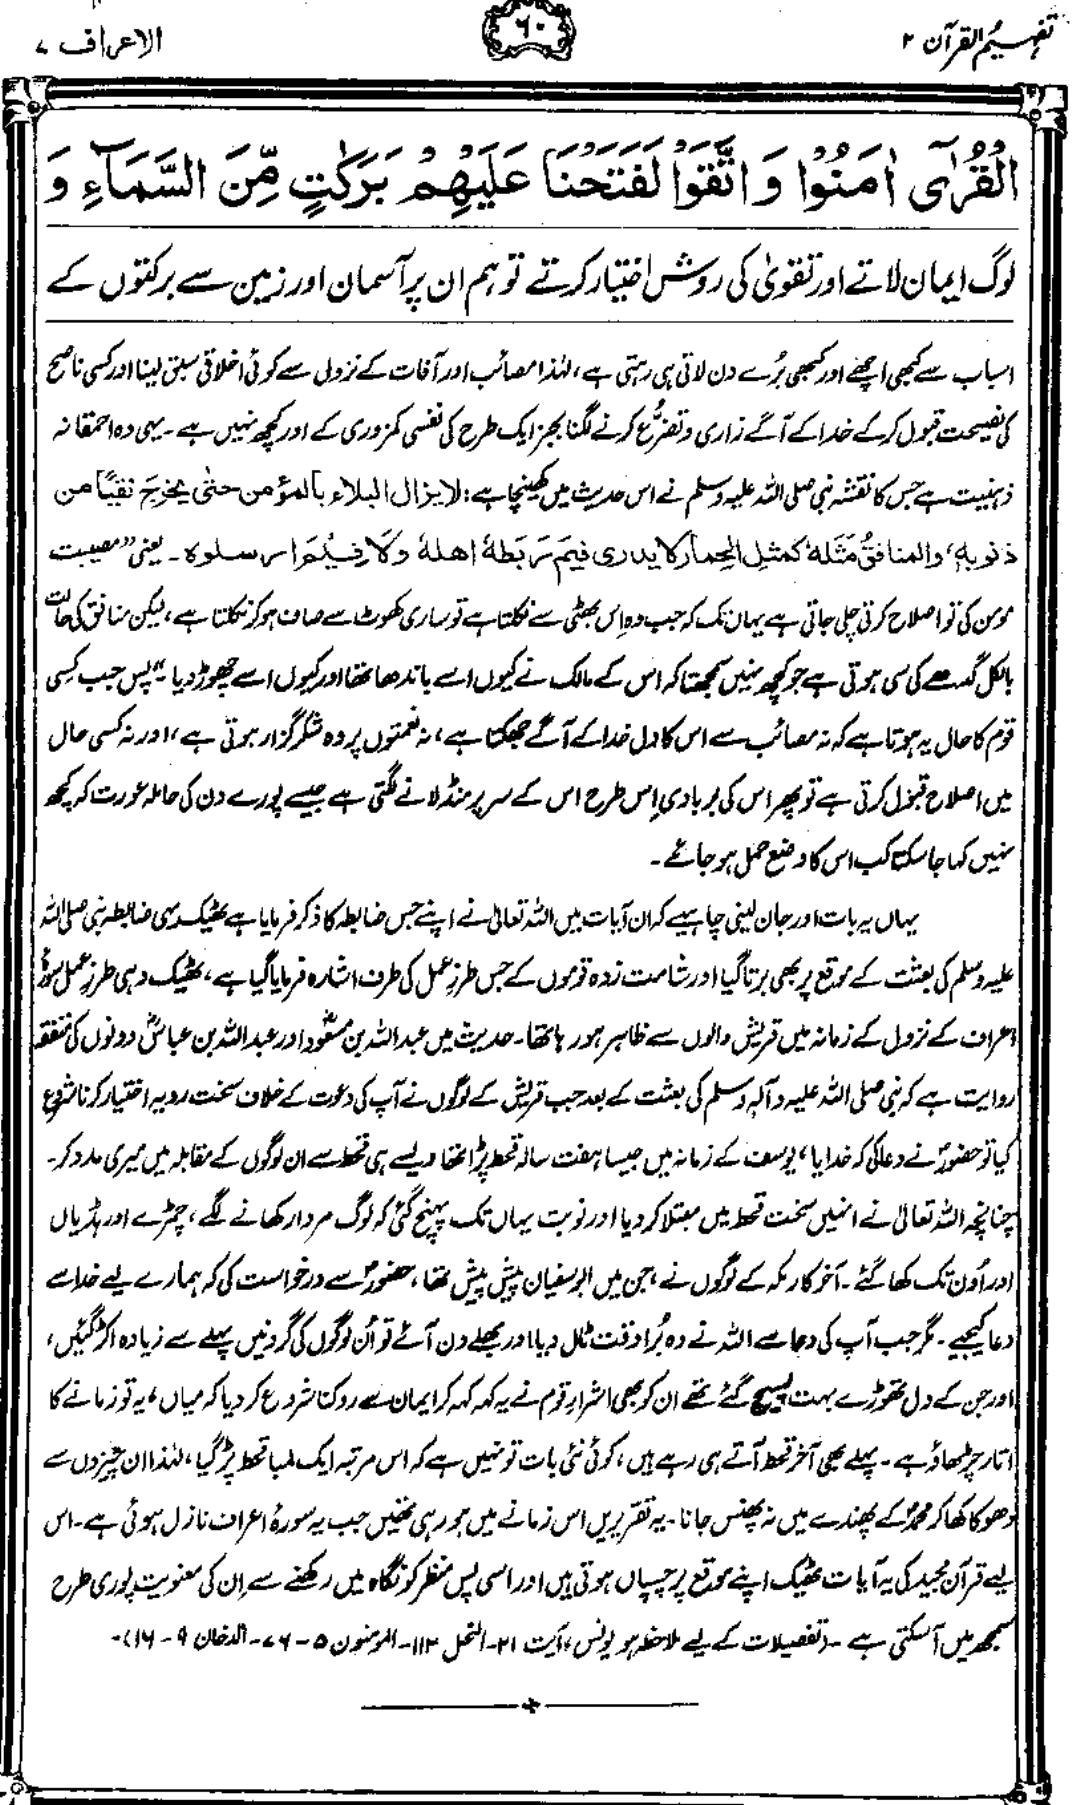 تفہیم القرآن ۲
۶۰
الاعراف ۷
الْقُرٰٓى اٰمَنُوْا وَ اتَّقَوْا لَفَتَحْنَا عَلَيْهِمْ بَرَكٰتٍ مِّنَ السَّمَآءِ وَ
لوگ ایمان لاتے اور تقویٰ کی روش اختیار کرتے تو ہم ان پر آسمان اور زمین سے برکتوں کے
اسباب سے کبھی اچھے اور کبھی بُرے دن لاتی ہی رہتی ہے، لہٰذا مصائب اور آفات کے نزول سے کوئی اخلاقی سبق لینا اور کسی ناصح
کی نصیحت قبول کر کے خدا کے آگے زاری و تضرُّع کرنے لگنا بجز ایک طرح کی نفسی کمزوری کے اور کچھ نہیں ہے۔ یہی وہ احمقانہ
ذہنیت ہے جس کا نقشہ نبی صلی اللہ علیہ وسلم نے اس حدیث میں کھینچا ہے: لا یزال البلاء بالمؤمن حتیٰ یخرجَ نقیًّا من
ذنوبہٖ، والمنافقُ مَثَلُہٗ کمثلِ الحِمارِ لا یدری فیمَ رَبَطہٗ اھلہٗ ولا فِیْمَ ارسلوہ۔ یعنی ”مصیبت
مومن کی تو اصلاح کرتی چلی جاتی ہے یہاں تک کہ جب وہ اِس بھٹی سے نکلتا ہے تو ساری کھوٹ سے صاف ہو کر نکلتا ہے، لیکن منافق کی حالت
بالکل گدھے کی سی ہوتی ہے جو کچھ نہیں سمجھتا کہ اس کے مالک نے کیوں اسے باندھا تھا اور کیوں اسے چھوڑ دیا“ پس جب کسی
قوم کا حال یہ ہوتا ہے کہ نہ مصائب سے اس کا دل خدا کے آگے جھکتا ہے، نہ نعمتوں پر وہ شکر گزار ہوتی ہے، اور نہ کسی حال
میں اصلاح قبول کرتی ہے تو پھر اس کی بربادی اِس طرح اس کے سر پر منڈلانے لگتی ہے جیسے پورے دن کی حاملہ عورت کہ کچھ
نہیں کہا جا سکتا کب اس کا وضع حمل ہو جائے۔
یہاں یہ بات اور جان لینی چاہیے کہ ان آیات میں اللہ تعالیٰ نے اپنے جس ضابطہ کا ذکر فرمایا ہے ٹھیک یہی ضابطہ نبی صلی اللہ
علیہ وسلم کی بعثت کے موقع پر بھی برتا گیا اور شامت زدہ قوموں کے جس طرزِ عمل کی طرف اشارہ فرمایا گیا ہے، ٹھیک وہی طرزِ عمل سورۂ
اعراف کے نزول کے زمانہ میں قریش والوں سے ظاہر ہو رہا تھا۔ حدیث میں عبداللہ بن مسعودؓ اور عبداللہ بن عباسؓ دونوں کی متفقہ
روایت ہے کہ نبی صلی اللہ علیہ وآلہ وسلم کی بعثت کے بعد جب قریش کے لوگوں نے آپ کی دعوت کے خلاف سخت رویہ اختیار کرنا شروع
کیا تو حضورؐ نے دعا کی کہ خدایا، یوسف کے زمانہ میں جیسا ہفت سالہ قحط پڑا تھا ویسے ہی قحط سے ان لوگوں کے مقابلہ میں میری مدد کر۔
چنانچہ اللہ تعالیٰ نے انہیں سخت قحط میں مبتلا کر دیا اور نوبت یہاں تک پہنچ گئی کہ لوگ مردار کھانے لگے، چمڑے اور ہڈیاں
اور اُون تک کھا گئے۔ آخر کار مکہ کے لوگوں نے، جن میں ابو سفیان پیش پیش تھا، حضورؐ سے درخواست کی کہ ہمارے لیے خدا سے
دعا کیجیے۔ مگر جب آپ کی دعا سے اللہ نے وہ بُرا وقت ٹال دیا اور بھلے دن آئے تو اُن لوگوں کی گردنیں پہلے سے زیادہ اکڑ گئیں،
اور جن کے دل تھوڑے بہت پسیج گئے تھے ان کو بھی اشرارِ قوم نے یہ کہہ کہہ کر ایمان سے روکنا شروع کر دیا کہ میاں، یہ تو زمانے کا
اتار چڑھاؤ ہے۔ پہلے بھی آخر قحط آتے ہی رہے ہیں، کوئی نئی بات تو نہیں ہے کہ اس مرتبہ ایک لمبا قحط پڑ گیا، لہٰذا ان چیزوں سے
دھوکا کھا کر محمدؐ کے پھندے میں نہ پھنس جانا۔ یہ تقریریں اس زمانے میں ہو رہی تھیں جب یہ سورۂ اعراف نازل ہوئی ہے۔ اس
لیے قرآن مجید کی یہ آیات ٹھیک اپنے موقع پر چسپاں ہوتی ہیں اور اسی پس منظر کو نگاہ میں رکھنے سے اِن کی معنویت پوری طرح
سمجھ میں آ سکتی ہے۔ (تفصیلات کے لیے ملاحظہ ہو یونس، آیت ۲۱۔ النحل ۱۱۲۔ المومنون ۵-۷۶۔ الدخان ۹-۱۶)۔